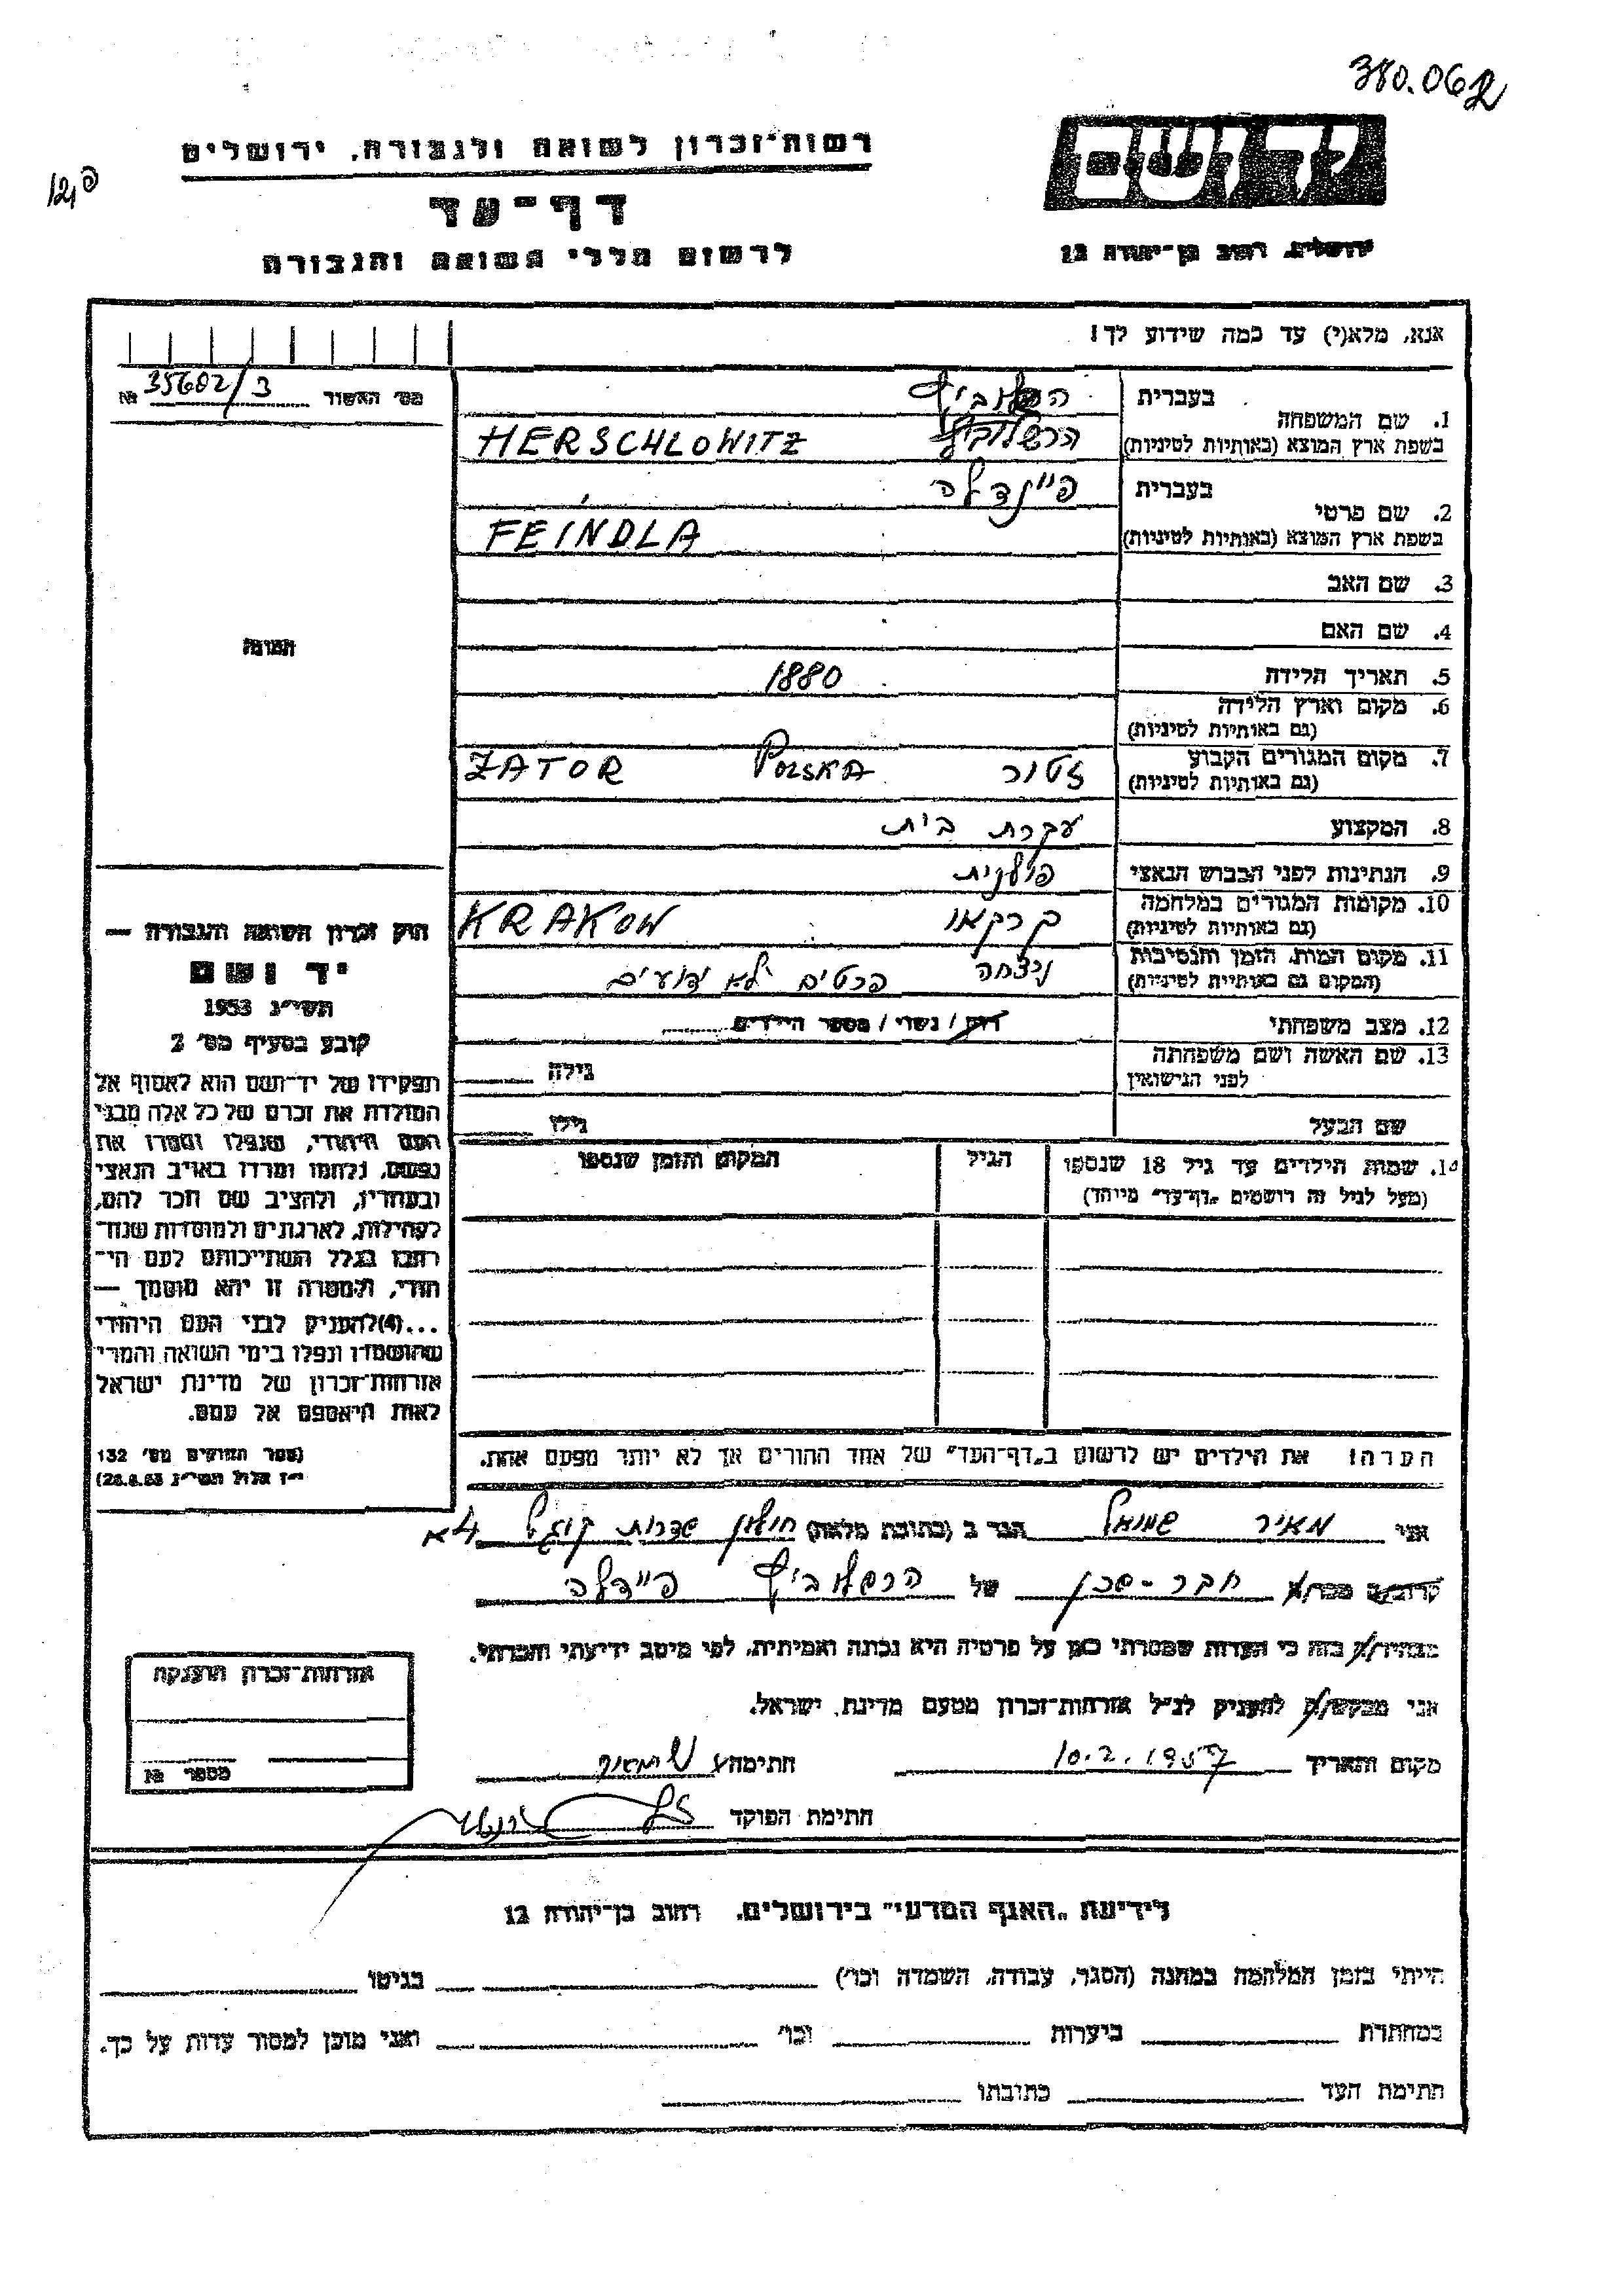 380.062
רשות־זכרון לשואה ולגבורה, ירושלים
דף־עד
לרשום חללי השואה והגבורה
יד ושם
ירושלים, רחוב בן־יהודה 12
אנא, מלא(י) עד כמה שידוע לך!
מס' האשור 35602/3 №
1. שם המשפחה
בעברית הרשלוביץ
בשפת ארץ המוצא (באותיות לטיניות) הרשלוביץ HERSCHLOWITZ
2. שם פרטי
בעברית פיינדלה
בשפת ארץ המוצא (באותיות לטיניות) FEINDLA
3. שם האב
4. שם האם
תמונה
5. תאריך הלידה 1880
6. מקום וארץ הלידה
(גם באותיות לטיניות)
7. מקום המגורים הקבוע זטור POLSKA ZATOR
(גם באותיות לטיניות)
8. המקצוע עקרת בית
9. הנתינות לפני הכבוש הנאצי פולנית
10. מקומות המגורים במלחמה קרקאו KRAKOW
(גם באותיות לטיניות)
11. מקום המות, הזמן והנסיבות ניצחה פרטים לא ידועים
(המקום גם באותיות לטיניות)
12. מצב משפחתי רווק / נשוי / מספר הילדים
13. שם האשה ושם משפחתה גילה
לפני הנישואין
שם הבעל גילו
שמות הילדים עד גיל 18 שנספו הגיל המקום והזמן שנספו
(מעל לגיל זה רושמים "דף־עד" מיוחד)
חוק זכרון השואה והגבורה —
יד ושם
תשי"ג 1953
קובע בסעיף מס' 2
תפקידו של יד־ושם הוא לאסוף אל
המולדת את זכרם של כל אלה מבני
העם היהודי, שנפלו ומסרו את
נפשם, נלחמו ומרדו באויב הנאצי
ובעוזריו, ולהציב שם וזכר להם,
לקהילות, לארגונים ולמוסדות שנח־
רבו בגלל השתייכותם לעם הי־
הודי, ולמטרה זו יהא מוסמך —
...(4)להעניק לבני העם היהודי
שהושמדו ונפלו בימי השואה והמרי
אזרחות־זכרון של מדינת ישראל
לאות היאספם אל עמם.
(ספר החוקים מס' 132
י"ז אלול תשי"ג 28.8.53)
הערה! את הילדים יש לרשום ב"דף־העד" של אחד ההורים אך לא יותר מפעם אחת.
אני מאיר שמואל הגר ב (כתובת מלאה) חולון שדרות קוגל 4א
קרוב/ה מכר/ה חבר - שכן של הרשלוביץ פיידלה
מצהיר/ה בזה כי העדות שמסרתי כאן על פרטיה היא נכונה ואמיתית, לפי מיטב ידיעתי והכרתי.
אני מבקש/ת להעניק לנ"ל אזרחות־זכרון מטעם מדינת ישראל.
מקום ותאריך 10.2.1957 חתימה
חתימת הפוקד
אזרחות־זכרון הוענקה
מספר №
לידיעת "האגף המדעי" בירושלים, רחוב בן־יהודה 12
הייתי בזמן המלחמה במחנה (הסגר, עבודה, השמדה וכו') בגיטו
במחתרת ביערות וכו' ואני מוכן למסור עדות על כך.
חתימת העד כתובתו